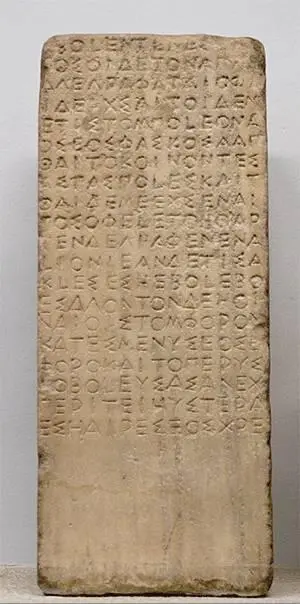 ΒΟLΕΝΤΕΜΕ
ΟΣΟΙΔΕΤΟΝΑ
ΑΛΕΛΡΑΦΑΤΑΙΟΣ
ΙΔΕΧΣΑΙΤΟΙΔΕΝ
ΕΤΙΣΤΟΜΠΟLΕΟΝΑ
ΟΣΕΟΣΦΑΣΚΟΣΑΑΠ
ΘΑΙΤΟΚΟΙΝΟΝΤΕΣ
ΙΣΤΑΣΠΟLΕΣΚΑΙΤ
ΘΑΙΔΕΜΕΕΧΣΕΝΑΙ
ΤΟΣΟΦΕLΕΤΟΕΟΑΡ
ΕΝΔΕΛΡΑΦΕΝΕΝΑ
LΙΟΝΕΑΝΔΕΤΙΣΑ
ΚLΕΣΕΣΗΕΒΟLΕΒΟ
ΕΣΔLΟΝΤΟΝΔΕΗΟ
ΝΑΙΟΙΣΤΟΜΦΟΡΟΝ
ΚΑΤΕΣΜΕΝΥΣΕΟΣΕ
ΦΟΡΟΚΑΙΤΟΠΕΡΥΣ
ΟΒΟLΕΥΣΑΣΑΝΕΧ
ΠΕΡΙΤΕΙΗΥΣΤΕΡΑ
ΕΣΗΑΙΡΕΣΕΟΣΧΡΕ